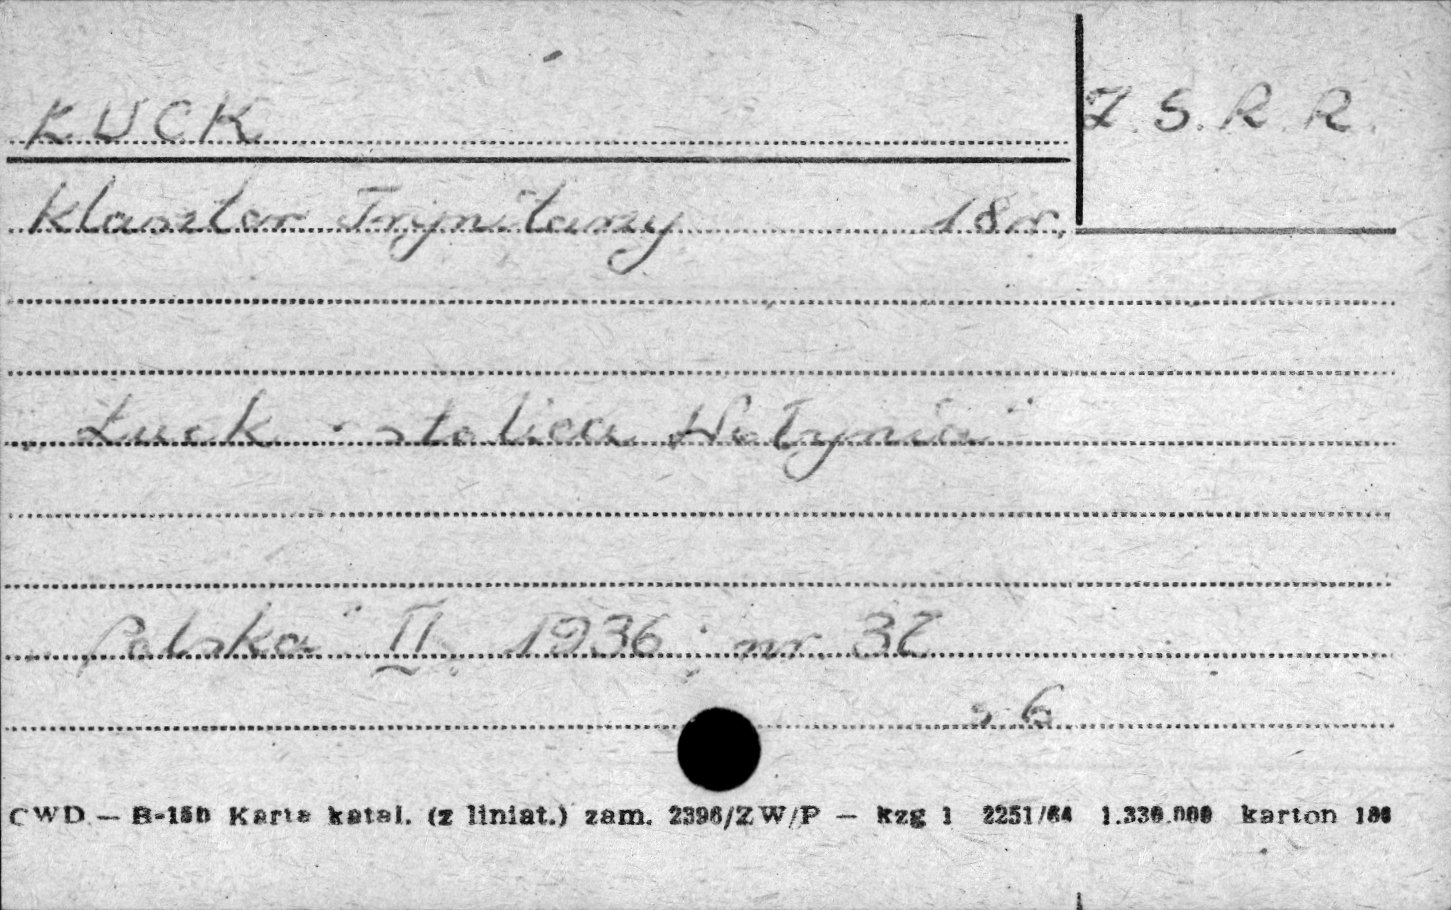 ŁUCK
Z.S.R.R.
Klasztor Trynitarzy 18 w.
„Łuck - stolica Wołynia"
„Polska" II. 1936, nr. 32
s 6
CWD — B-15b Karta katal. (z liniat.) zam. 2396/ZW/P — kzg 1 2251/64 1.330.000 karton